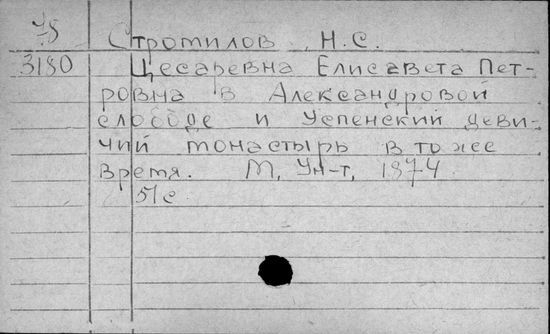 75 Стромилов Н.С.
3180 Цесаревна Елисавета Пет-
ровна в Александровой
слободе и Успенский деви-
чий монастырь в тоже
время. М, Ун-т, 1874
51с